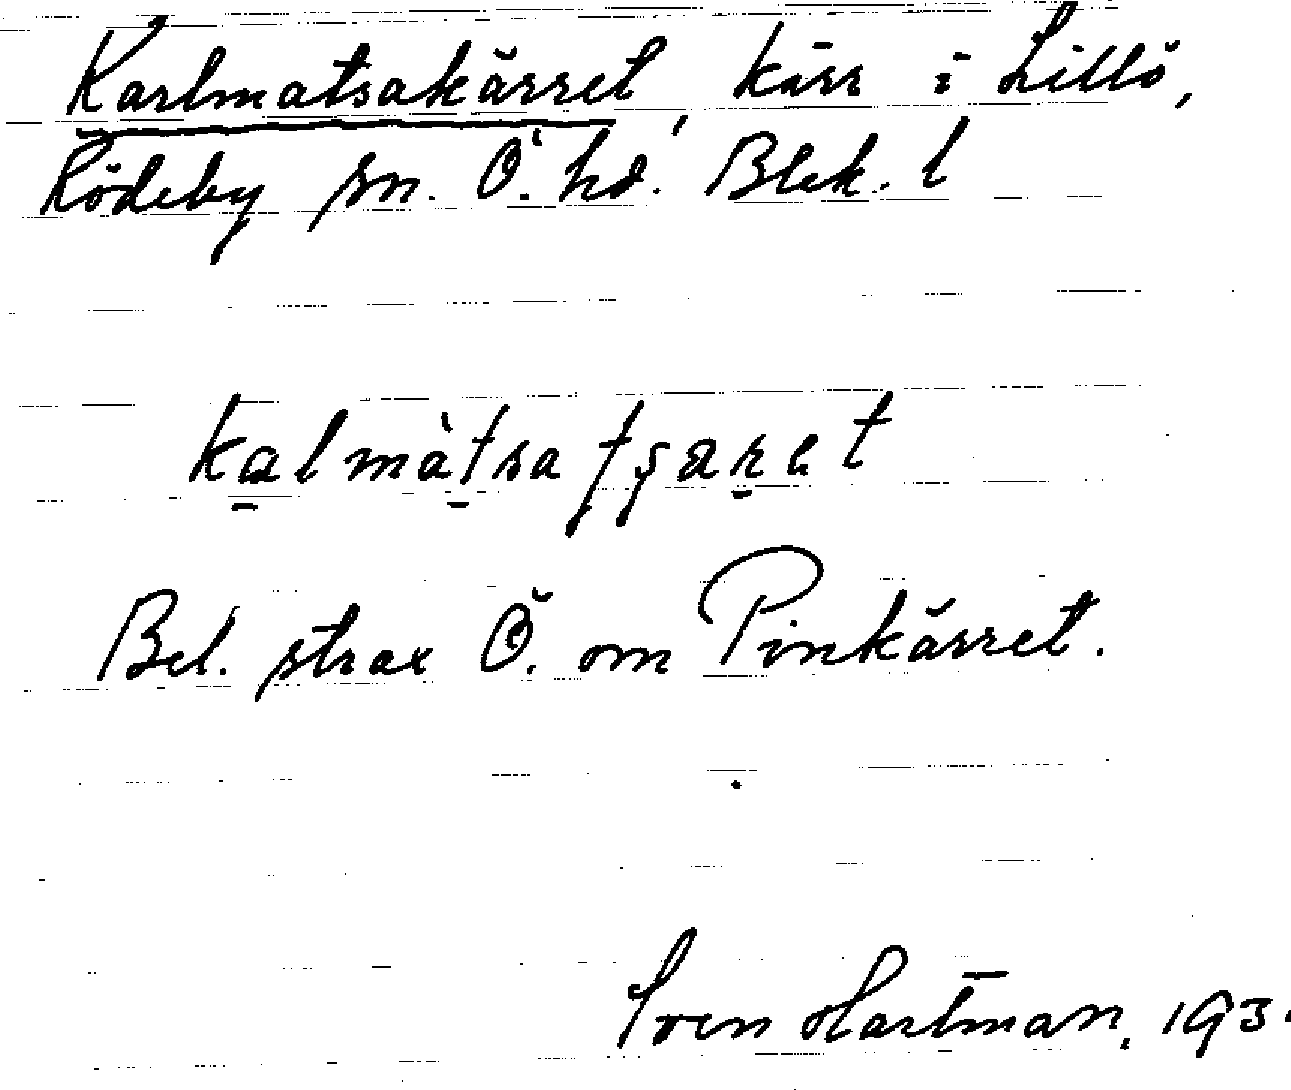 Karlmatsakärret, kärr i Lillö,
Rödeby sn. Ö. hd. Blek. l
kalmàtsatʂaret
Bel. strax Ö. om Pinkärret.
Sven Hartman, 193